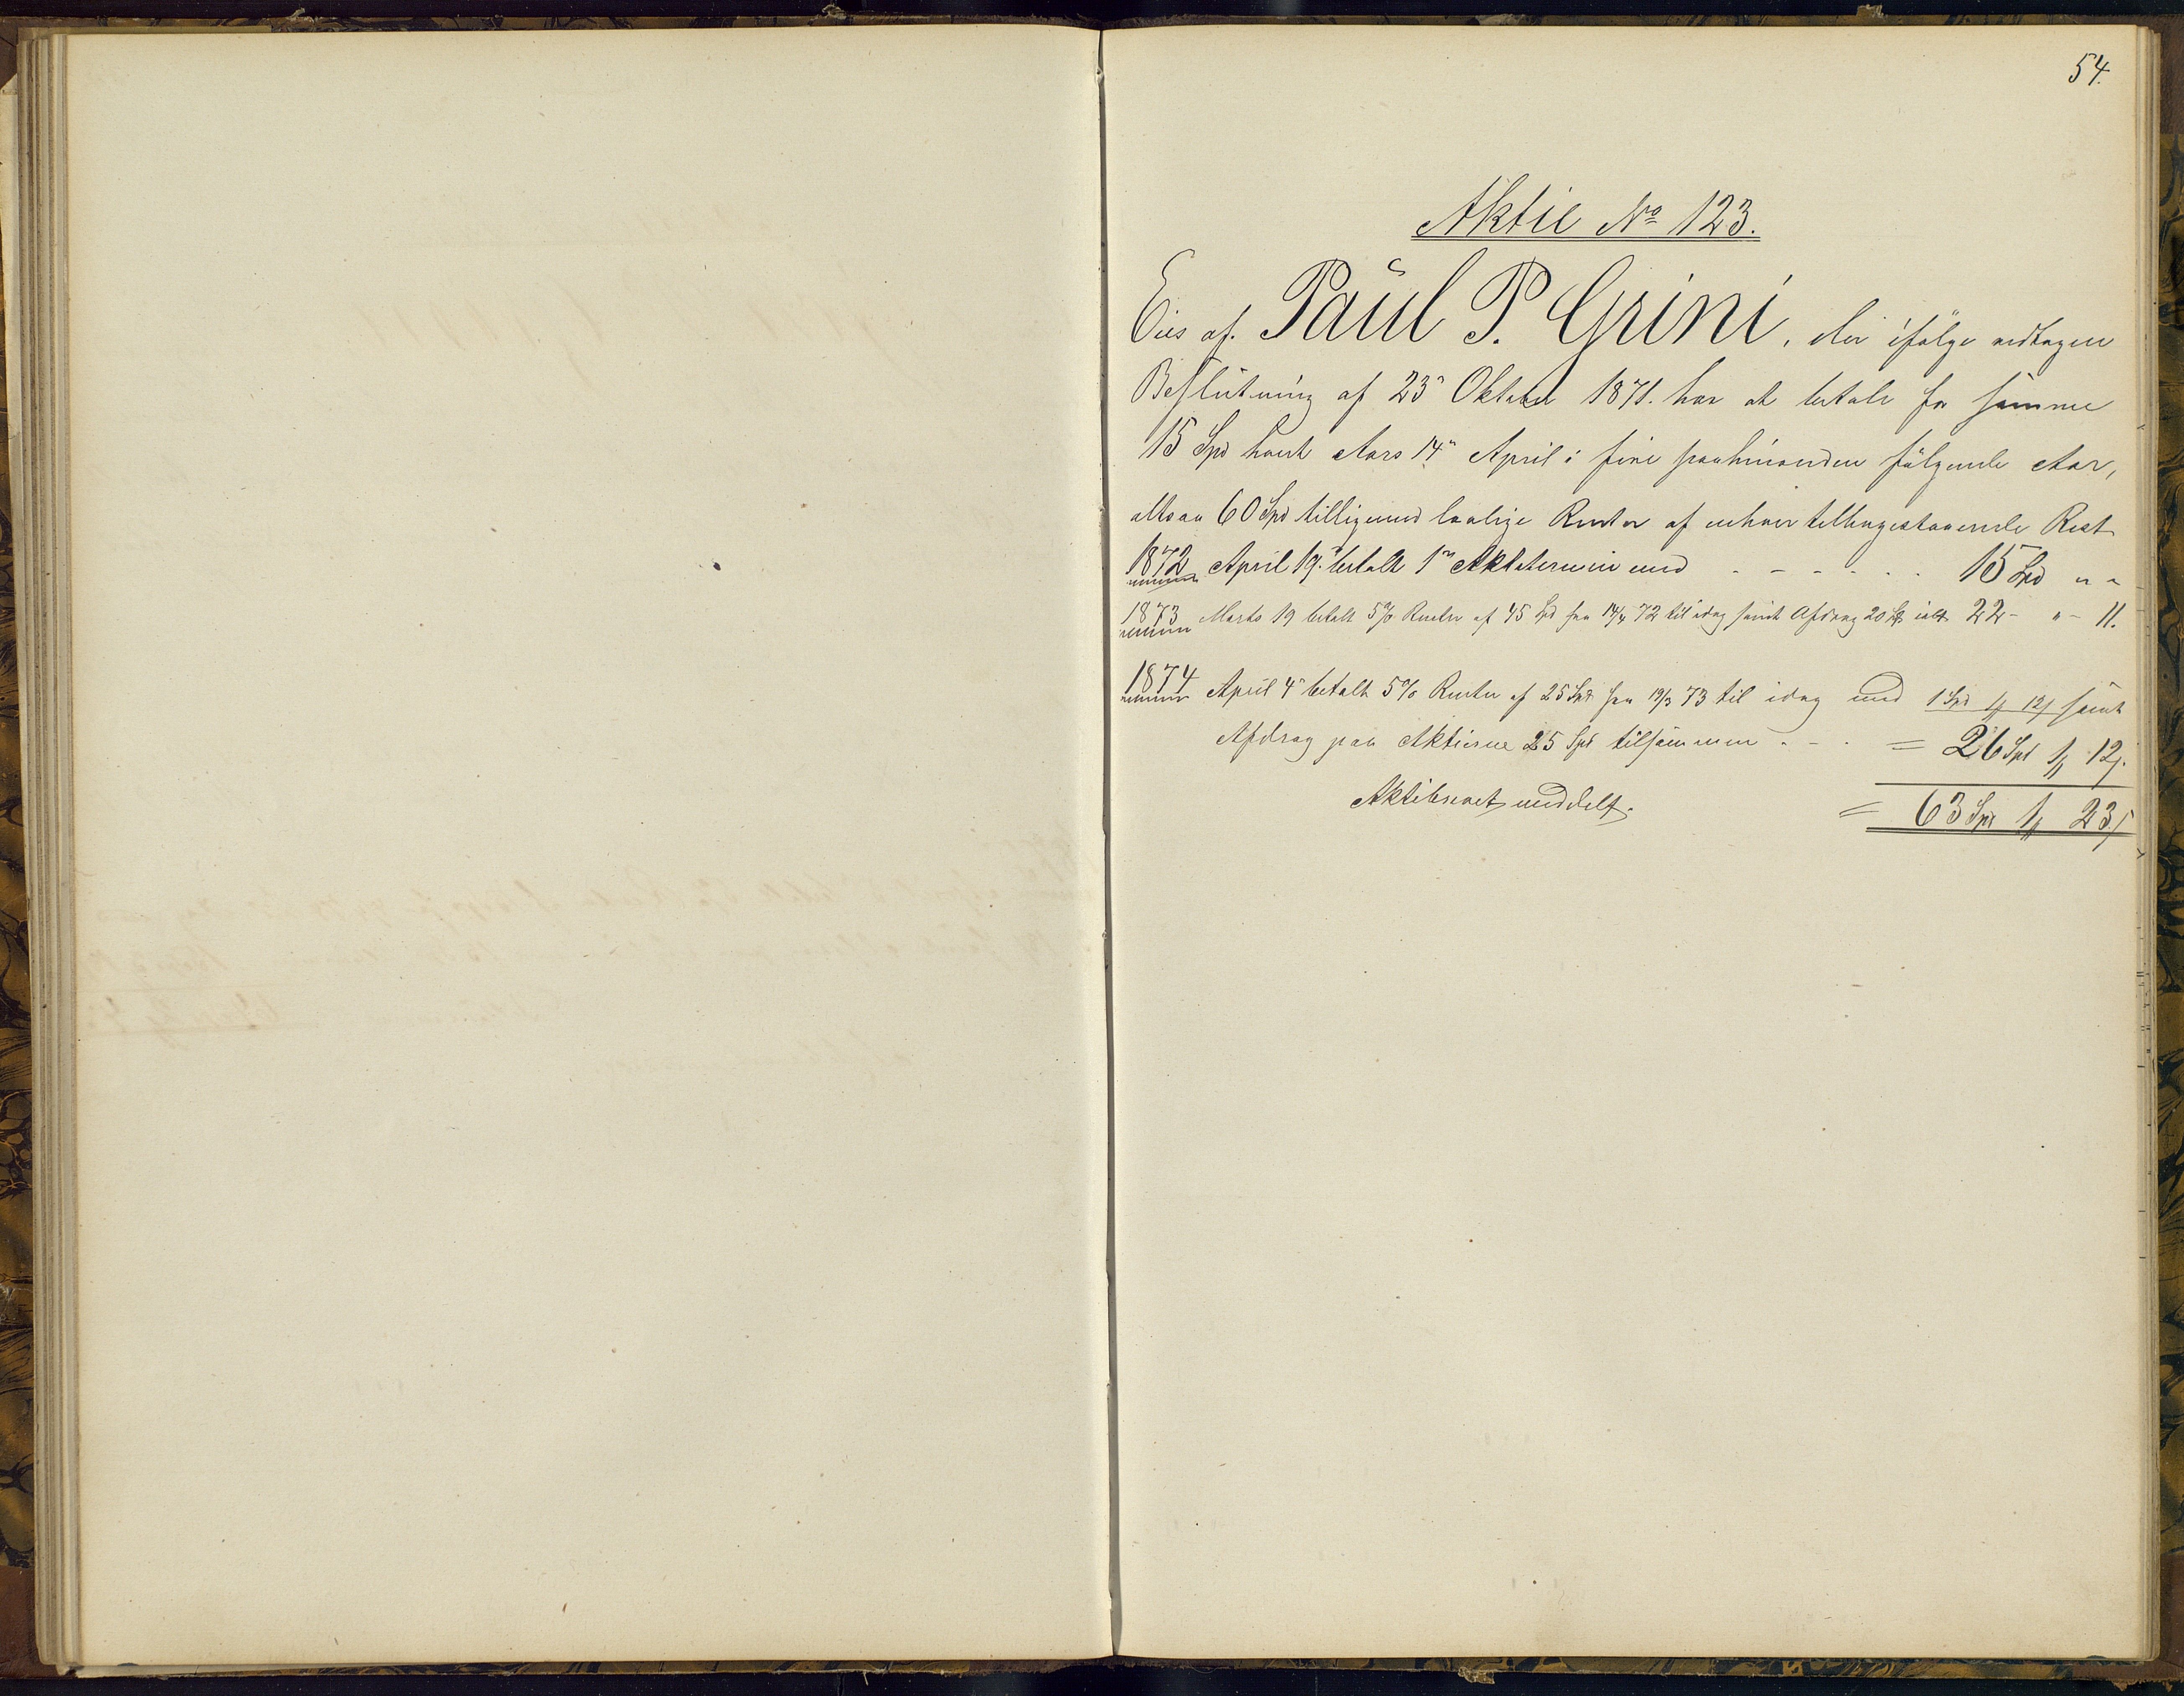 54.
Aktie No 123.
Eies af. Paul P. Grini, der ifölge vedtagen
Beslutning af 23' Oktober 1871. har at betale for samme
15 Spd hvert Aars 14" April i fire paahinanden fölgende Aar,
altsaa 60 Spd tilligemed lovlige Renter af enhver tilbagestaaende Rest
1872 April 19. betalt 1' Aktietermin med - - - - - 15 Spd " "
1873 Marts 19 betalt 5% Renter af 45 Spd fra 14/4 72 til idag samt Afdrag 20 Spd ialt 22 - " - 11.
1874 April 4' betalt 5% Renter af 25 Spd fra 19/3 73 til idag med 1 Spd 1/ 12/ samt
Afdrag paa Aktierne 25 Spd tilsammen - - - = 26 Spd 1/ 12/.
Aktiebrevet meddelt. = 63 Spd 1/ 23/